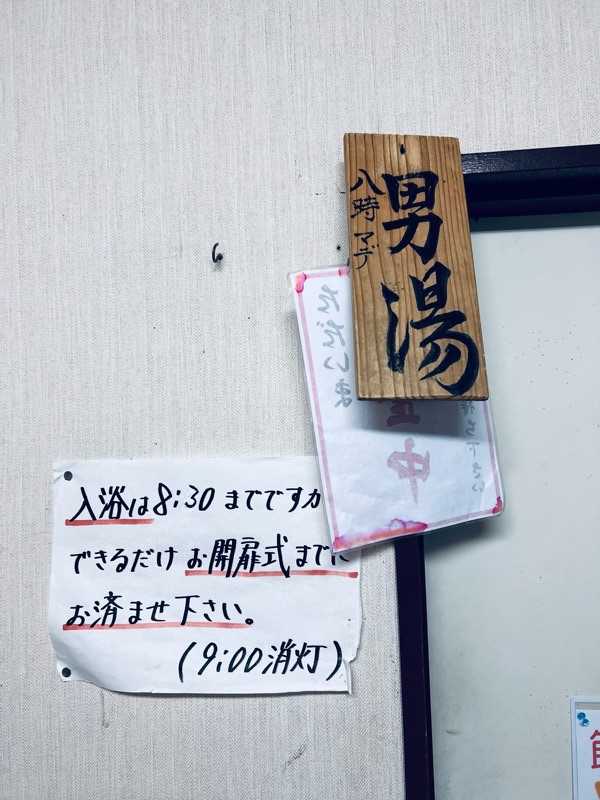 男湯
八時マデ
入浴は8:30までですが
できるだけお開扉式までに
お済ませ下さい。
(9:00消灯)